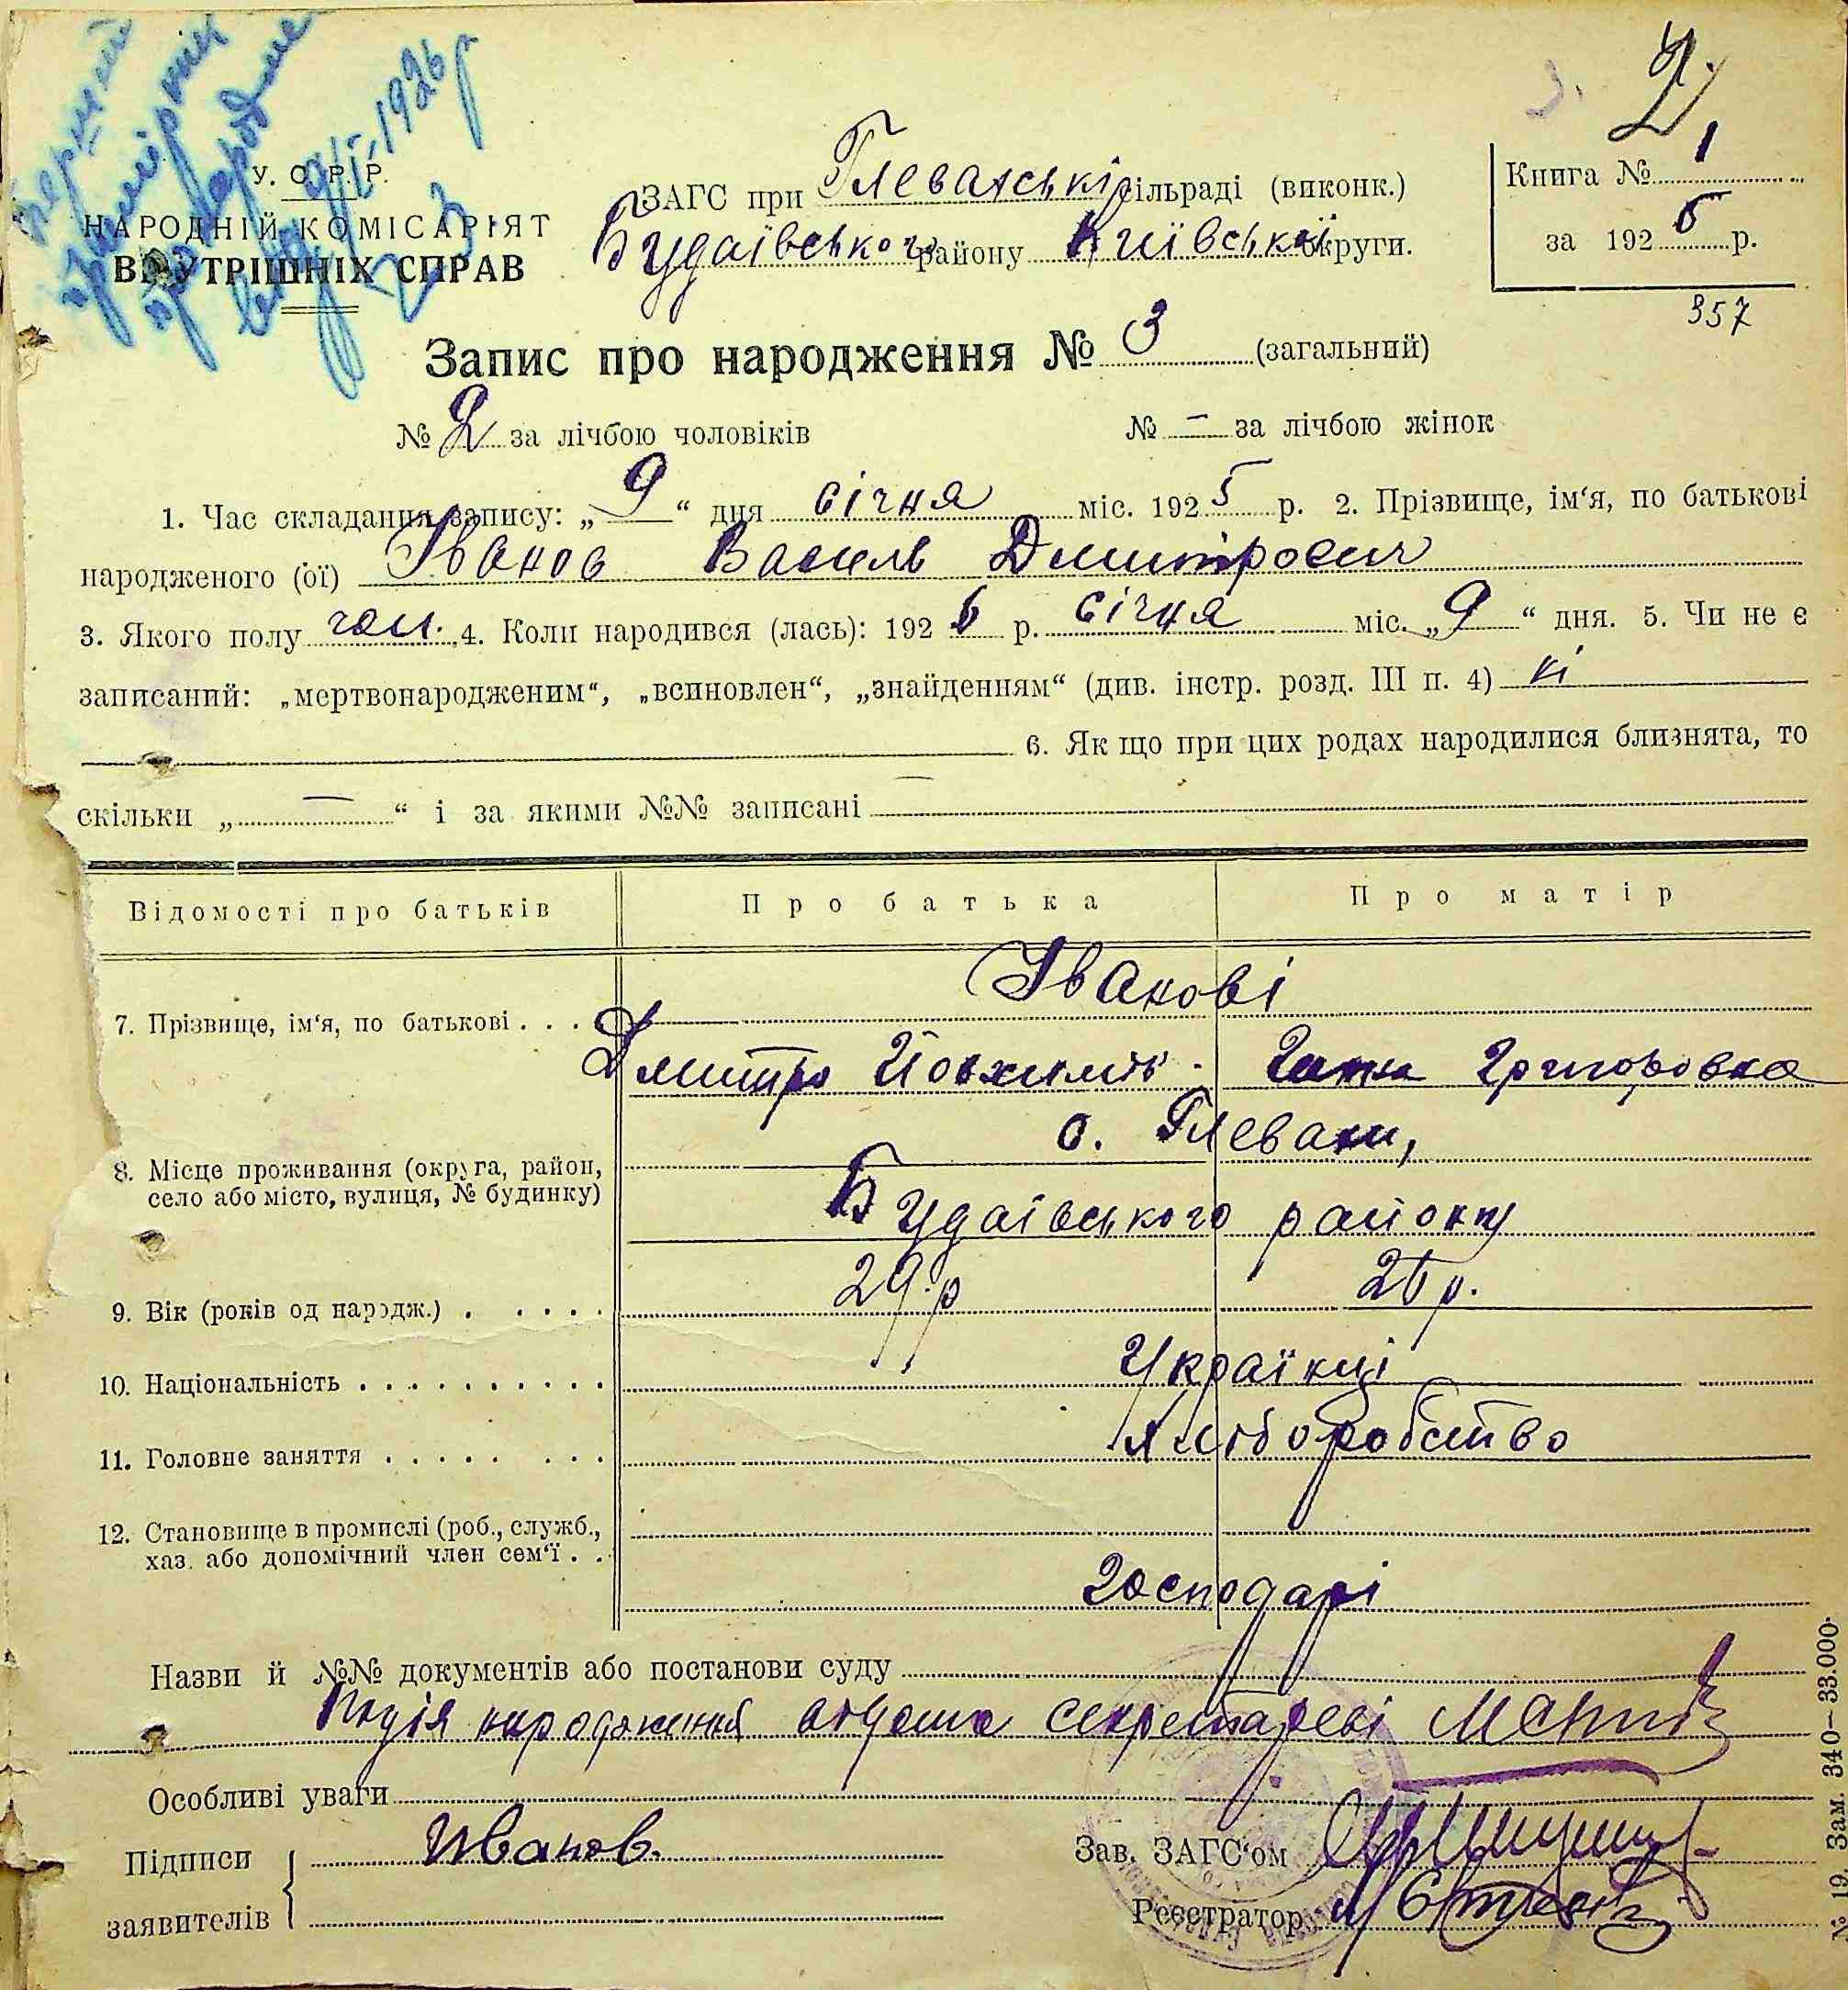 У. С. Р. Р.
НАРОДНІЙ КОМІСАРІЯТ
ВНУТРІШНІХ СПРАВ
1926 р
2
ЗАГС при Глевахські сільраді (виконк.)
Будаївського району Київської округи.
Книга № 1
за 1925 р.
357
Запис про народження № 3 (загальний)
№ 2 за лічбою чоловіків № — за лічбою жінок
1. Час складання запису: „9“ дня січня міс. 1925 р. 2. Прізвище, ім'я, по батькові
народженого (ої) Іванов Василь Дмитрович
3. Якого полу чол. 4. Коли народився (лась): 192 р. січня міс. „9“ дня. 5. Чи не є
записаний: „мертвонародженим“, „всиновлен“, „знайденням“ (див. інстр. розд. III п. 4) ні
6. Як що при цих родах народилися близнята, то
скільки „—“ і за якими №№ записані —
Відомості про батьків Про батька Про матір
Іванові
7. Прізвище, ім'я, по батькові . . . Дмитро Григоровна
с. Глеваки,
8. Місце проживання (округа, район,
село або місто, вулиця, № будинку) Будаївського району
9. Вік (років од народж.) . . . . . 29 р 25 р.
10. Національність . . . . . . . . . . Українці
11. Головне заняття . . . . . . . . Хліборобство
12. Становище в промислі (роб., служб.,
хаз. або допомічний член сем'ї . .
Господарі
Назви й №№ документів або постанови суду
Подія народження відома секретареві
Особливі уваги
Підписи Иванов.
заявителів
Зав. ЗАГС'ом
Реєстратор
№ 19. Зам. 340—33.000.